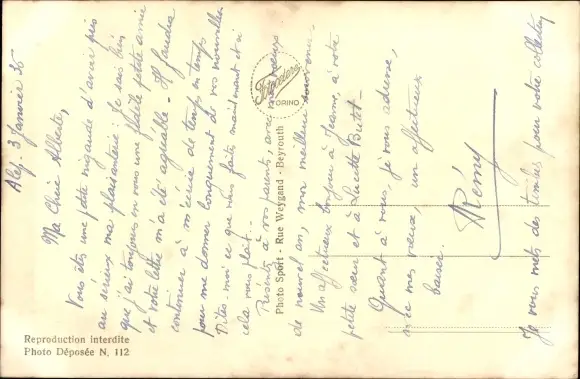 Alep. 3 Janvier 36
Ma Chère
Vous êtes une petite nigaude d'avoir pris
au sérieux ma plaisanterie. Je sais bien
que j'ai toujours en vous une petite amie
et votre lettre m'a été agréable. Il faudra
continuer à m'écrire de temps en temps
pour me donner longuement de vos nouvelles.
Dites-moi ce que vous faites maintenant et si
cela vous plaît...
Présentez à vos parents, avec mes voeux
de nouvel an, mon meilleur souvenir.
Un affectueux bonjour à Jeanne, à votre
petite soeur et à Lucette
Quant à vous, je vous adresse,
avec mes voeux, un affectueux
baiser.
Rémy
Je vous mets des timbres pour votre collection
Fotocelere
TORINO
Photo Sport - Rue Weygand - Beyrouth
Reproduction interdite
Photo Déposée N. 112